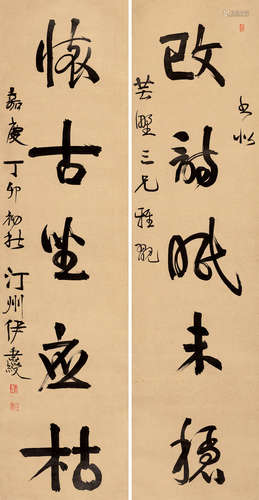 書似
改詩眠未穩
三兄雅
懷古坐應枯
嘉慶丁卯初秋汀州伊秉綬